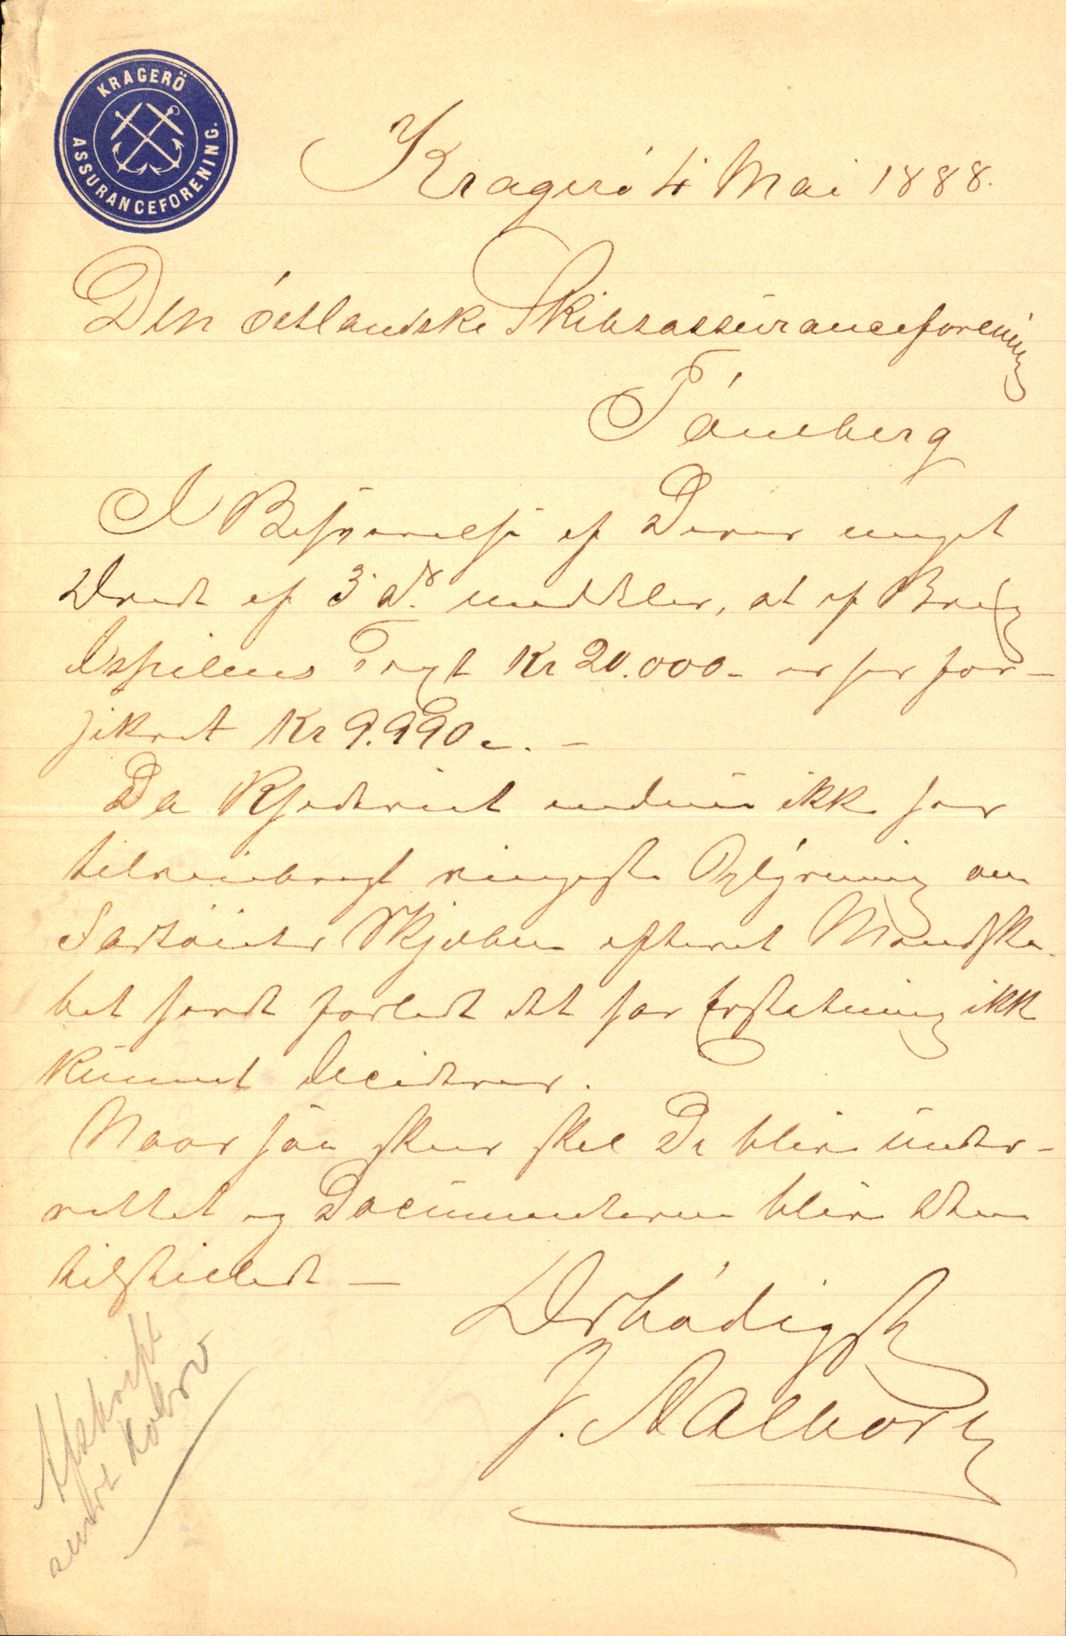 KRAGERÖ
ASSURANCEFORENING.
Kragerö 4 Mai 1888.
Den östlandske Skibsassuranceforening
Tönsberg
I Besvarelse af Deres meget
Ærede af 3 ds. meddeles, at af Brig
Fragt Kr 20.000 - er her for-
sikret Kr 9.990 -. -
Da Rhederiet endnu ikke har
tilveiebragt ringeste Oplysning om
Fartöiets Skjæbne efterat Mandska-
bet havde forladt det har Erstatning ikke
kunnet decideres.
Naar saa sker skal De blive under-
rettet og Documenterne blive Dem
tilstillede -
Ærbödigst
J. Aalborg
Afskrift
sendt